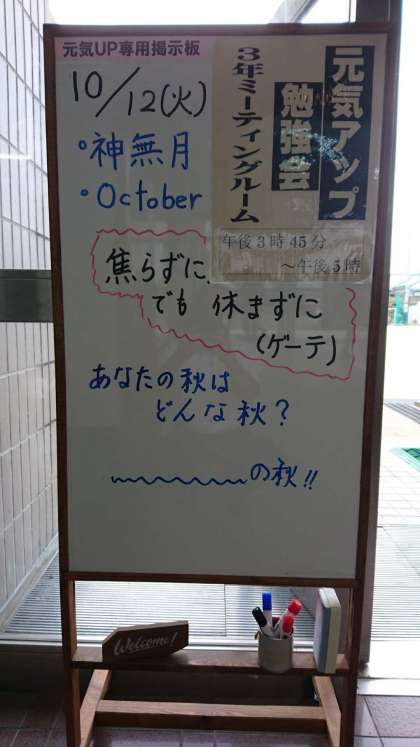 元気UP専用掲示板
元気アップ
勉強会
3年ミーティングルーム
午後3時45分
～午後5時
10/12(火)
・神無月
・October
焦らずに、
でも 休まずに
(ゲーテ)
あなたの秋は
どんな秋？
の秋!!
Welcome!